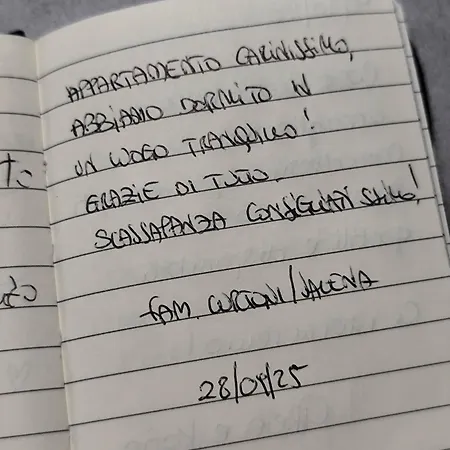 APPARTAMENTO CARINISSIMO,
ABBIAMO DORMITO IN
UN LUOGO TRANQUILLO!
GRAZIE DI TUTTO.
SCASSAPANZA CONSIGLIATISSIMO!
FAM.
28/04/25